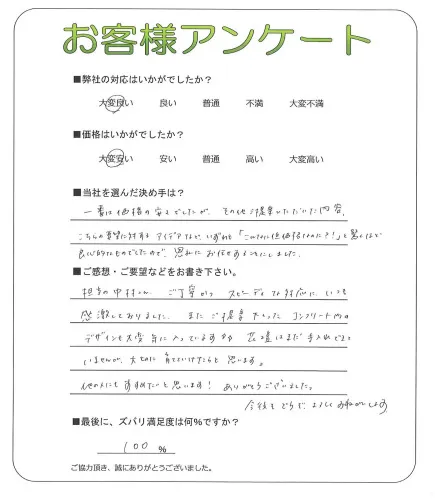 お客様アンケート
■弊社の対応はいかがでしたか？
大変良い 良い 普通 不満 大変不満
■価格はいかがでしたか？
大変安い 安い 普通 高い 大変高い
■当社を選んだ決め手は？
一番は価格の安さでしたが、その他ご提案いただいた内容、
こちらの要望に対するアイデアなど、いずれも「こんなに低価格なのに？！」と驚くほど
良心的なものでしたので、思わずお任せすることにしました。
■ご感想・ご要望などをお書き下さい。
担当の中村さん、ご丁寧かつスピーディな対応に、いつも
感激しておりました。またご提案下さったコンクリート内の
デザインも大変気に入っています 花壇はまだ手入れできて
いませんが、大切に育てていけたらと思います。
他の人にもすすめたいと思います！ ありがとうございました。
今後ともどうぞ、よろしくお願いします
■最後に、ズバリ満足度は何％ですか？
100 ％
ご協力頂き、誠にありがとうございました。